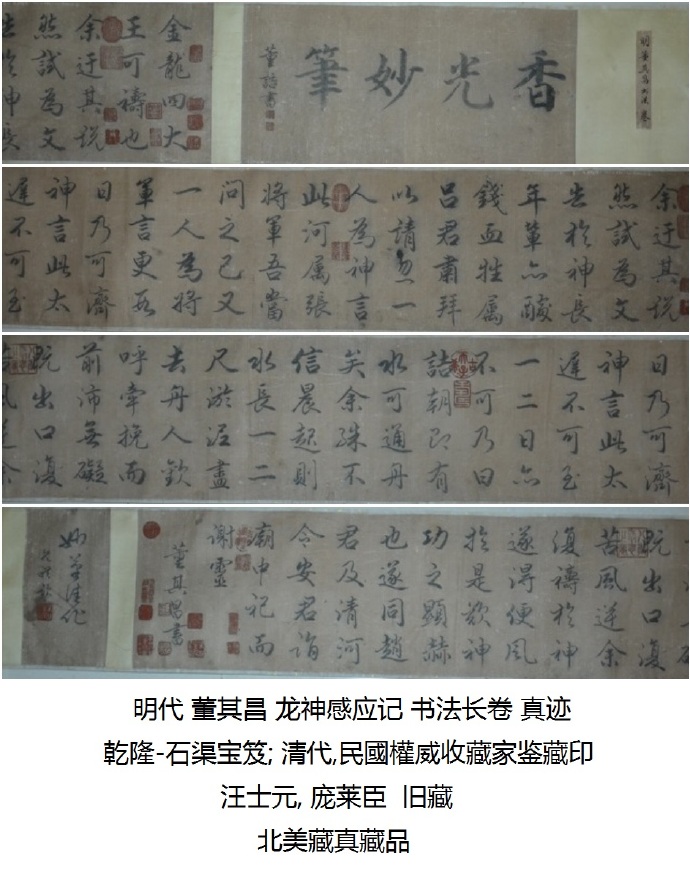 香光妙筆
董誥書
金龍四大
王可禱也
余迂其说
然試為文
告於神長
余迂其说
然試為文
告於神長
年輩亦醵
錢血牲属
吕君肅拜
以請忽一
人為神言
此河属張
將軍吾當
問之已又
一人為将
軍言更
日乃可濟
神言此太
遲不可至
日乃可濟
神言此太
遲不可至
一二日亦
不可乃曰
詰朝即有
水可通舟
矣余殊不
信晨起則
水長一二
尺淤泥盡
去舟人歓
呼牽挽而
前沛無礙
既出口復
苦風逆余
既出口復
苦風逆余
復禱於神
遂得便風
於是歎神
功之顯赫
也遂同趙
君及清河
令安君詣
廟中祀而
謝靈
董其昌書
妙筆佳作
明代 董其昌 龙神感应记 书法长卷 真迹
乾隆-石渠宝笈; 清代,民國權威收藏家鉴藏印
汪士元, 庞莱臣 旧藏
北美藏真藏品